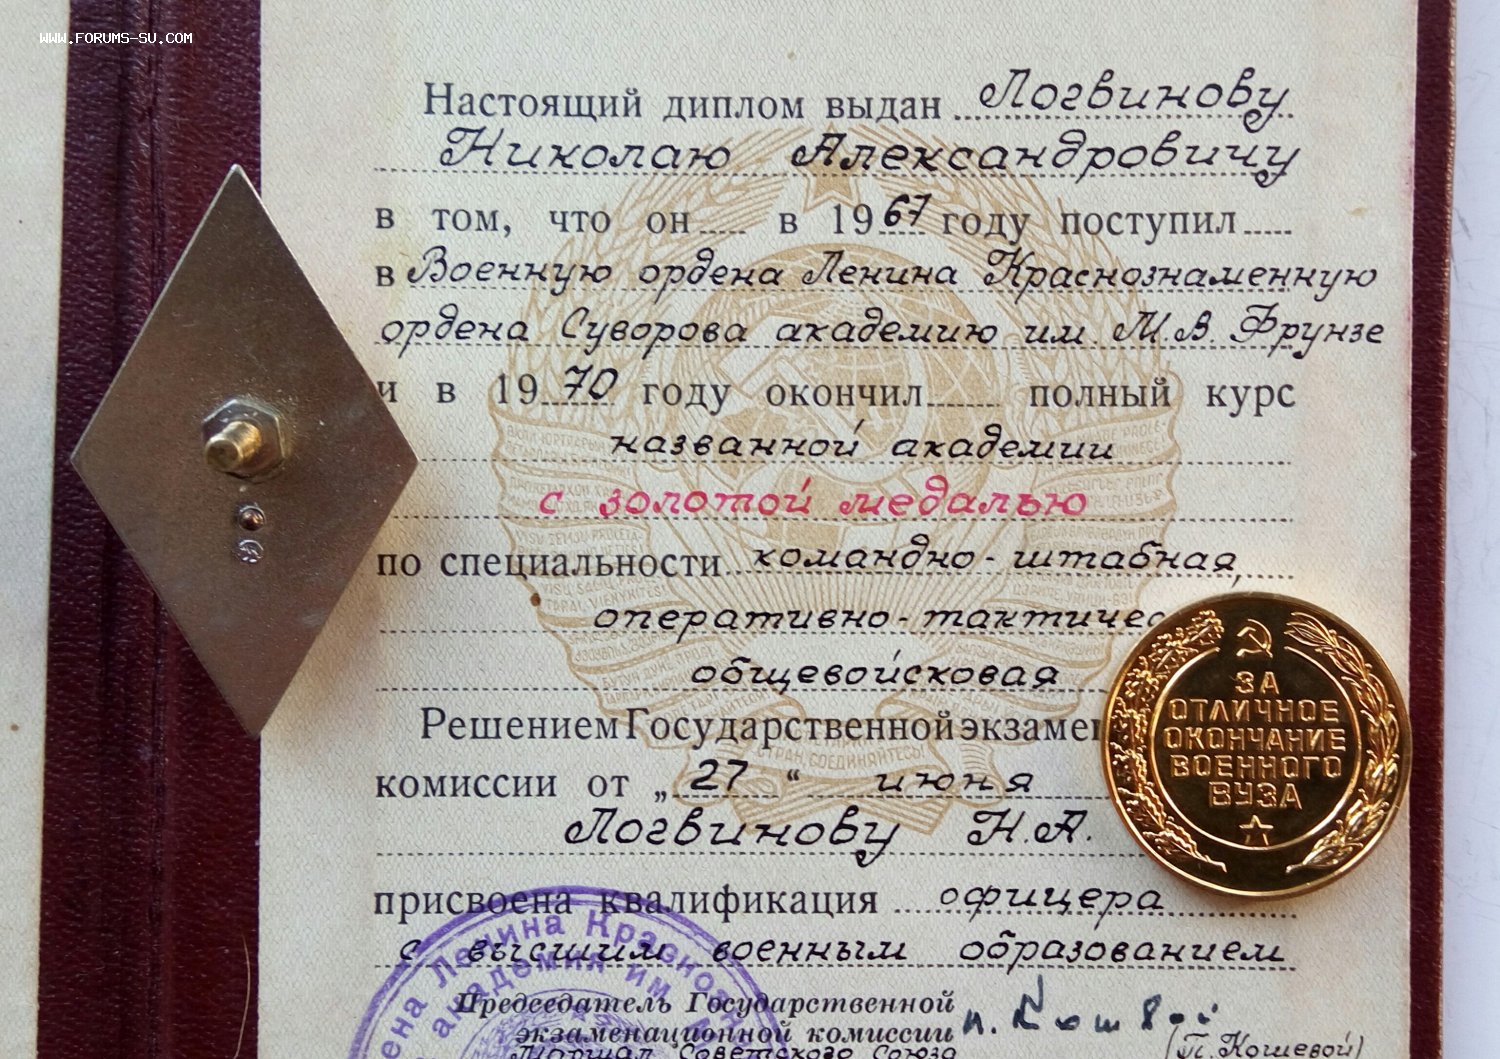 WWW.FORUMS-SU.COM
Настоящий диплом выдан Логвинову
Николаю Александровичу
в том, что он в 1967 году поступил
в Военную ордена Ленина Краснознаменную
ордена Суворова академию им. М.В. Фрунзе
и в 1970 году окончил полный курс
названной академии
с золотой медалью
по специальности командно-штабная,
оперативно-тактичес
общевойсковая
Решением Государственной экзамен
комиссии от „27“ июня
Логвинову Н.А.
присвоена квалификация офицера
с высшим военным образованием
Председатель Государственной
экзаменационной комиссии П. Кошевой
Маршал Советского Союза (П. Кошевой)
ена Ленина Красно
академия им
ЗА
ОТЛИЧНОЕ
ОКОНЧАНИЕ
ВОЕННОГО
ВУЗА
СТРАН, СОЕДИНЯЙТЕСЬ!